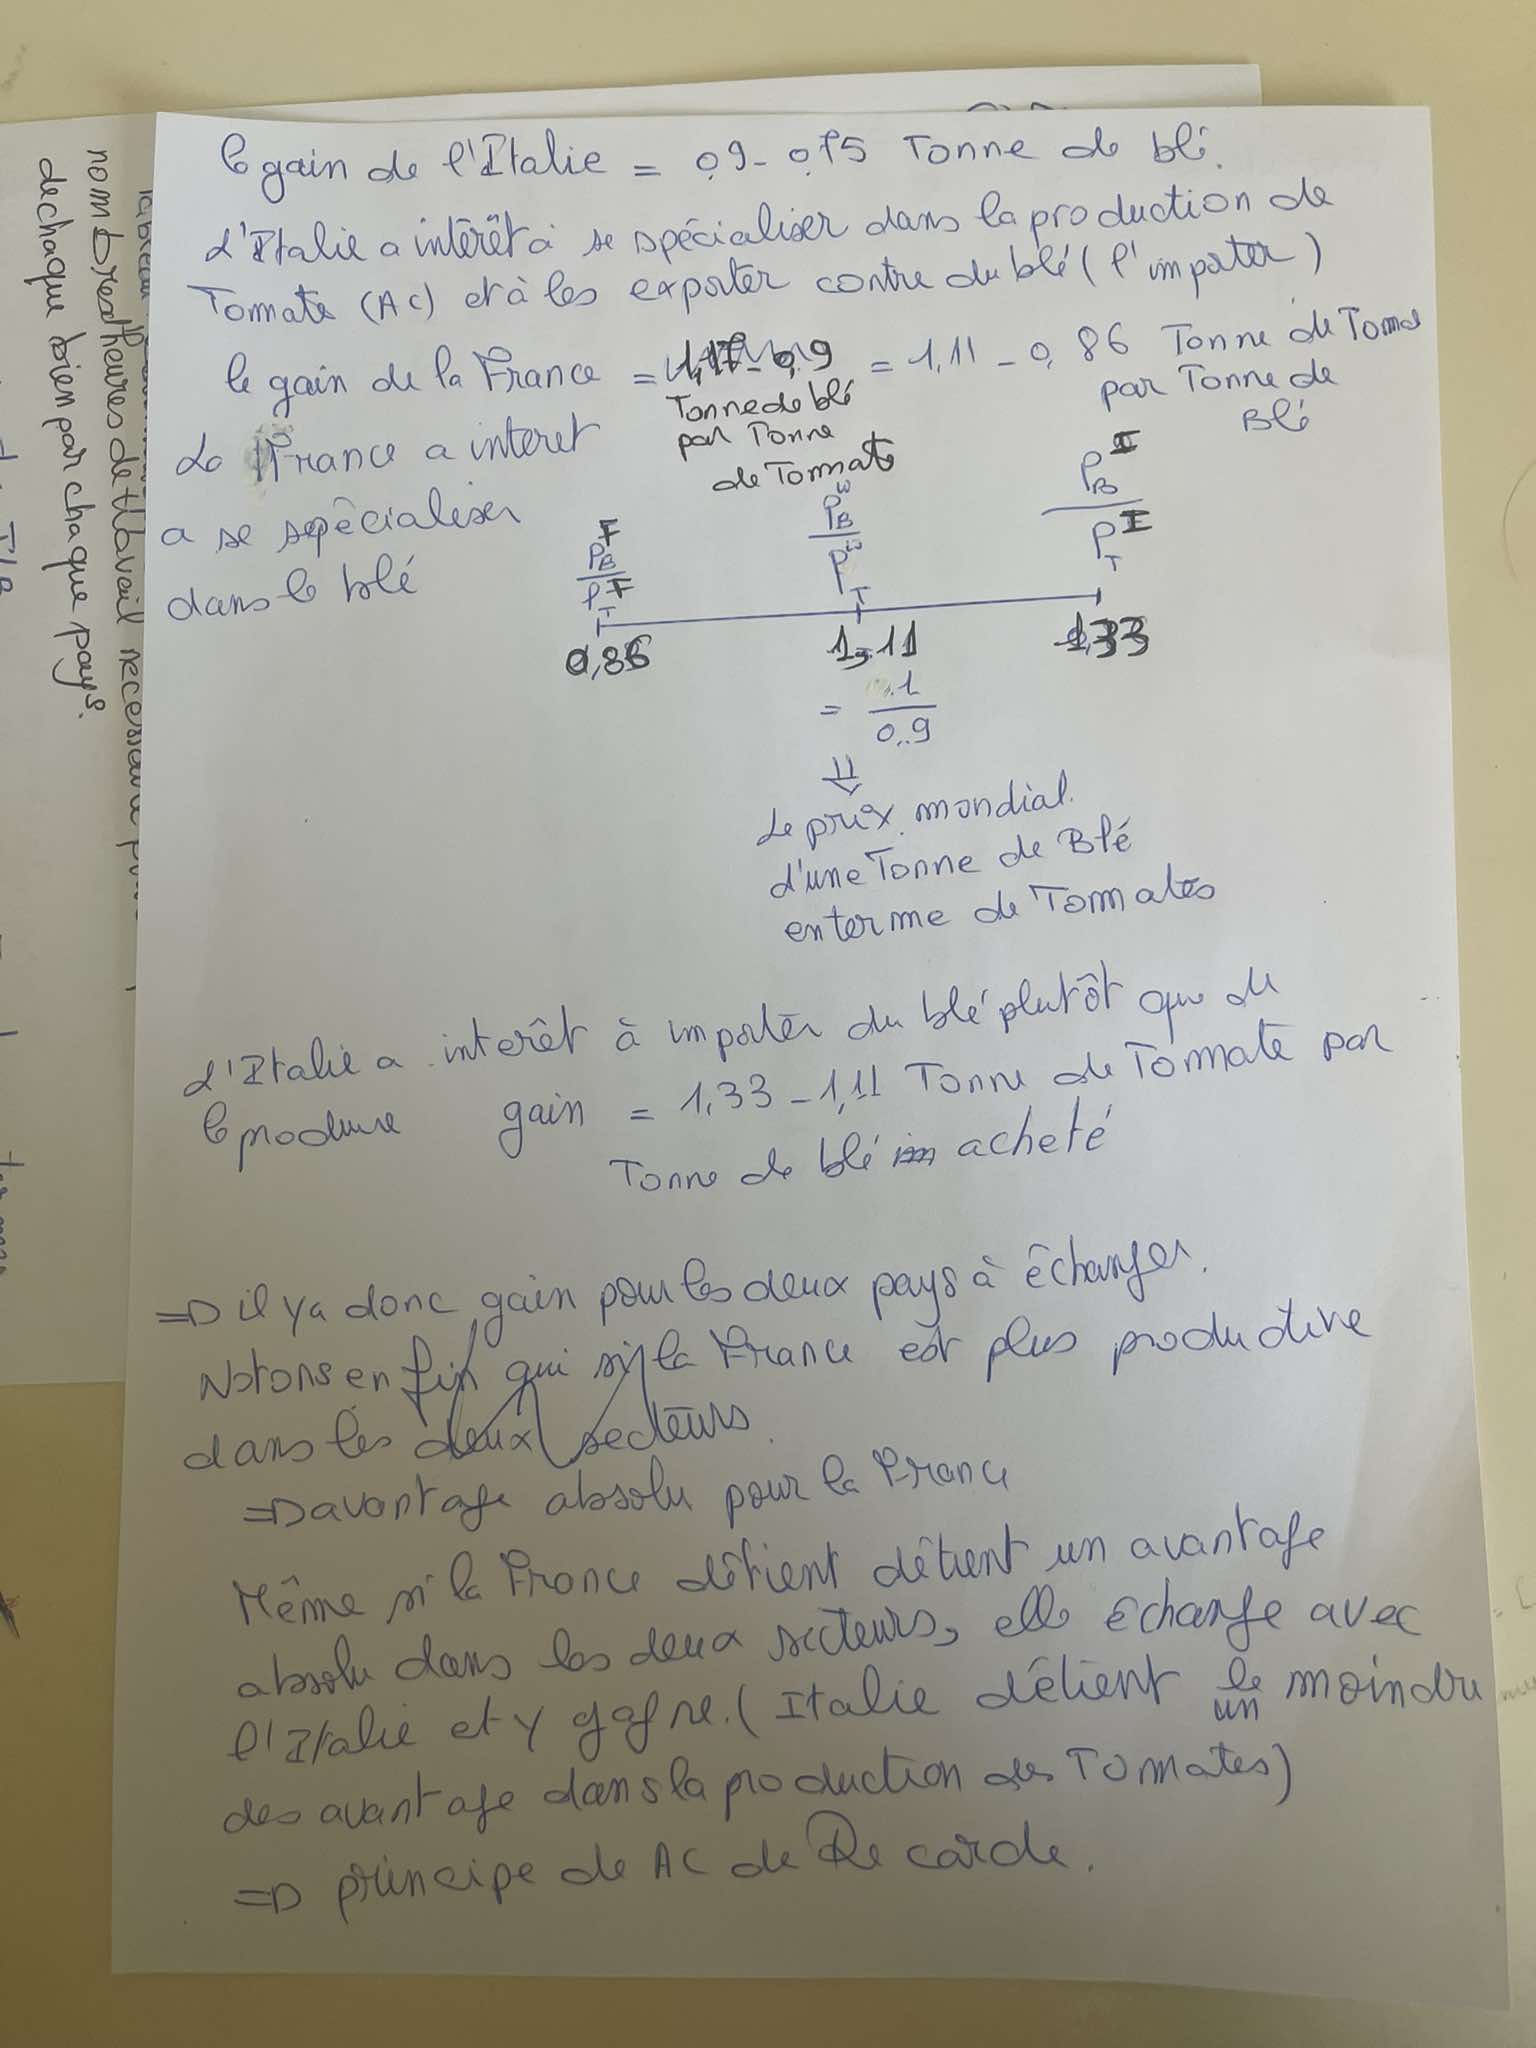 le gain de l'Italie = 0,9 - 0,75 Tonne de blé.
L'Italie a intérêt à se spécialiser dans la production de
Tomate (AC) et à les exporter contre du blé (l'importer)
le gain de la France = 1,17 - 0,9 = 1,11 - 0,86 Tonne de Tomat
Tonne de blé
par Tonne
de Tommate
par Tonne de
Blé
La France a interet
a se spécialiser
dans le blé
P_B^F / P_T^F
P_B^W / P_T^W
P_B^I / P_T^I
0,86 1,11 1,33
= 1 / 0,9
⇓
Le prix mondial
d'une Tonne de Blé
enterme de Tommates
L'Italie a interêt à importer du blé plutôt que de
le produire gain = 1,33 - 1,11 Tonne de Tommate par
Tonne de blé acheté
=> il ya donc gain pour les deux pays à échanger.
Notons en fin qui si la France est plus productive
dans les deux secteurs
=> avantage absolu pour la France
Même si la France détient détient un avantage
absolu dans les deux secteurs, elle échange avec
l'Italie et y gagne. (Italie détient le un moindre
des avantage dans la production des Tommates)
=> principe de AC de Recarde.
nombres d'heures de travail necessaire
de chaque bien par chaque pays.